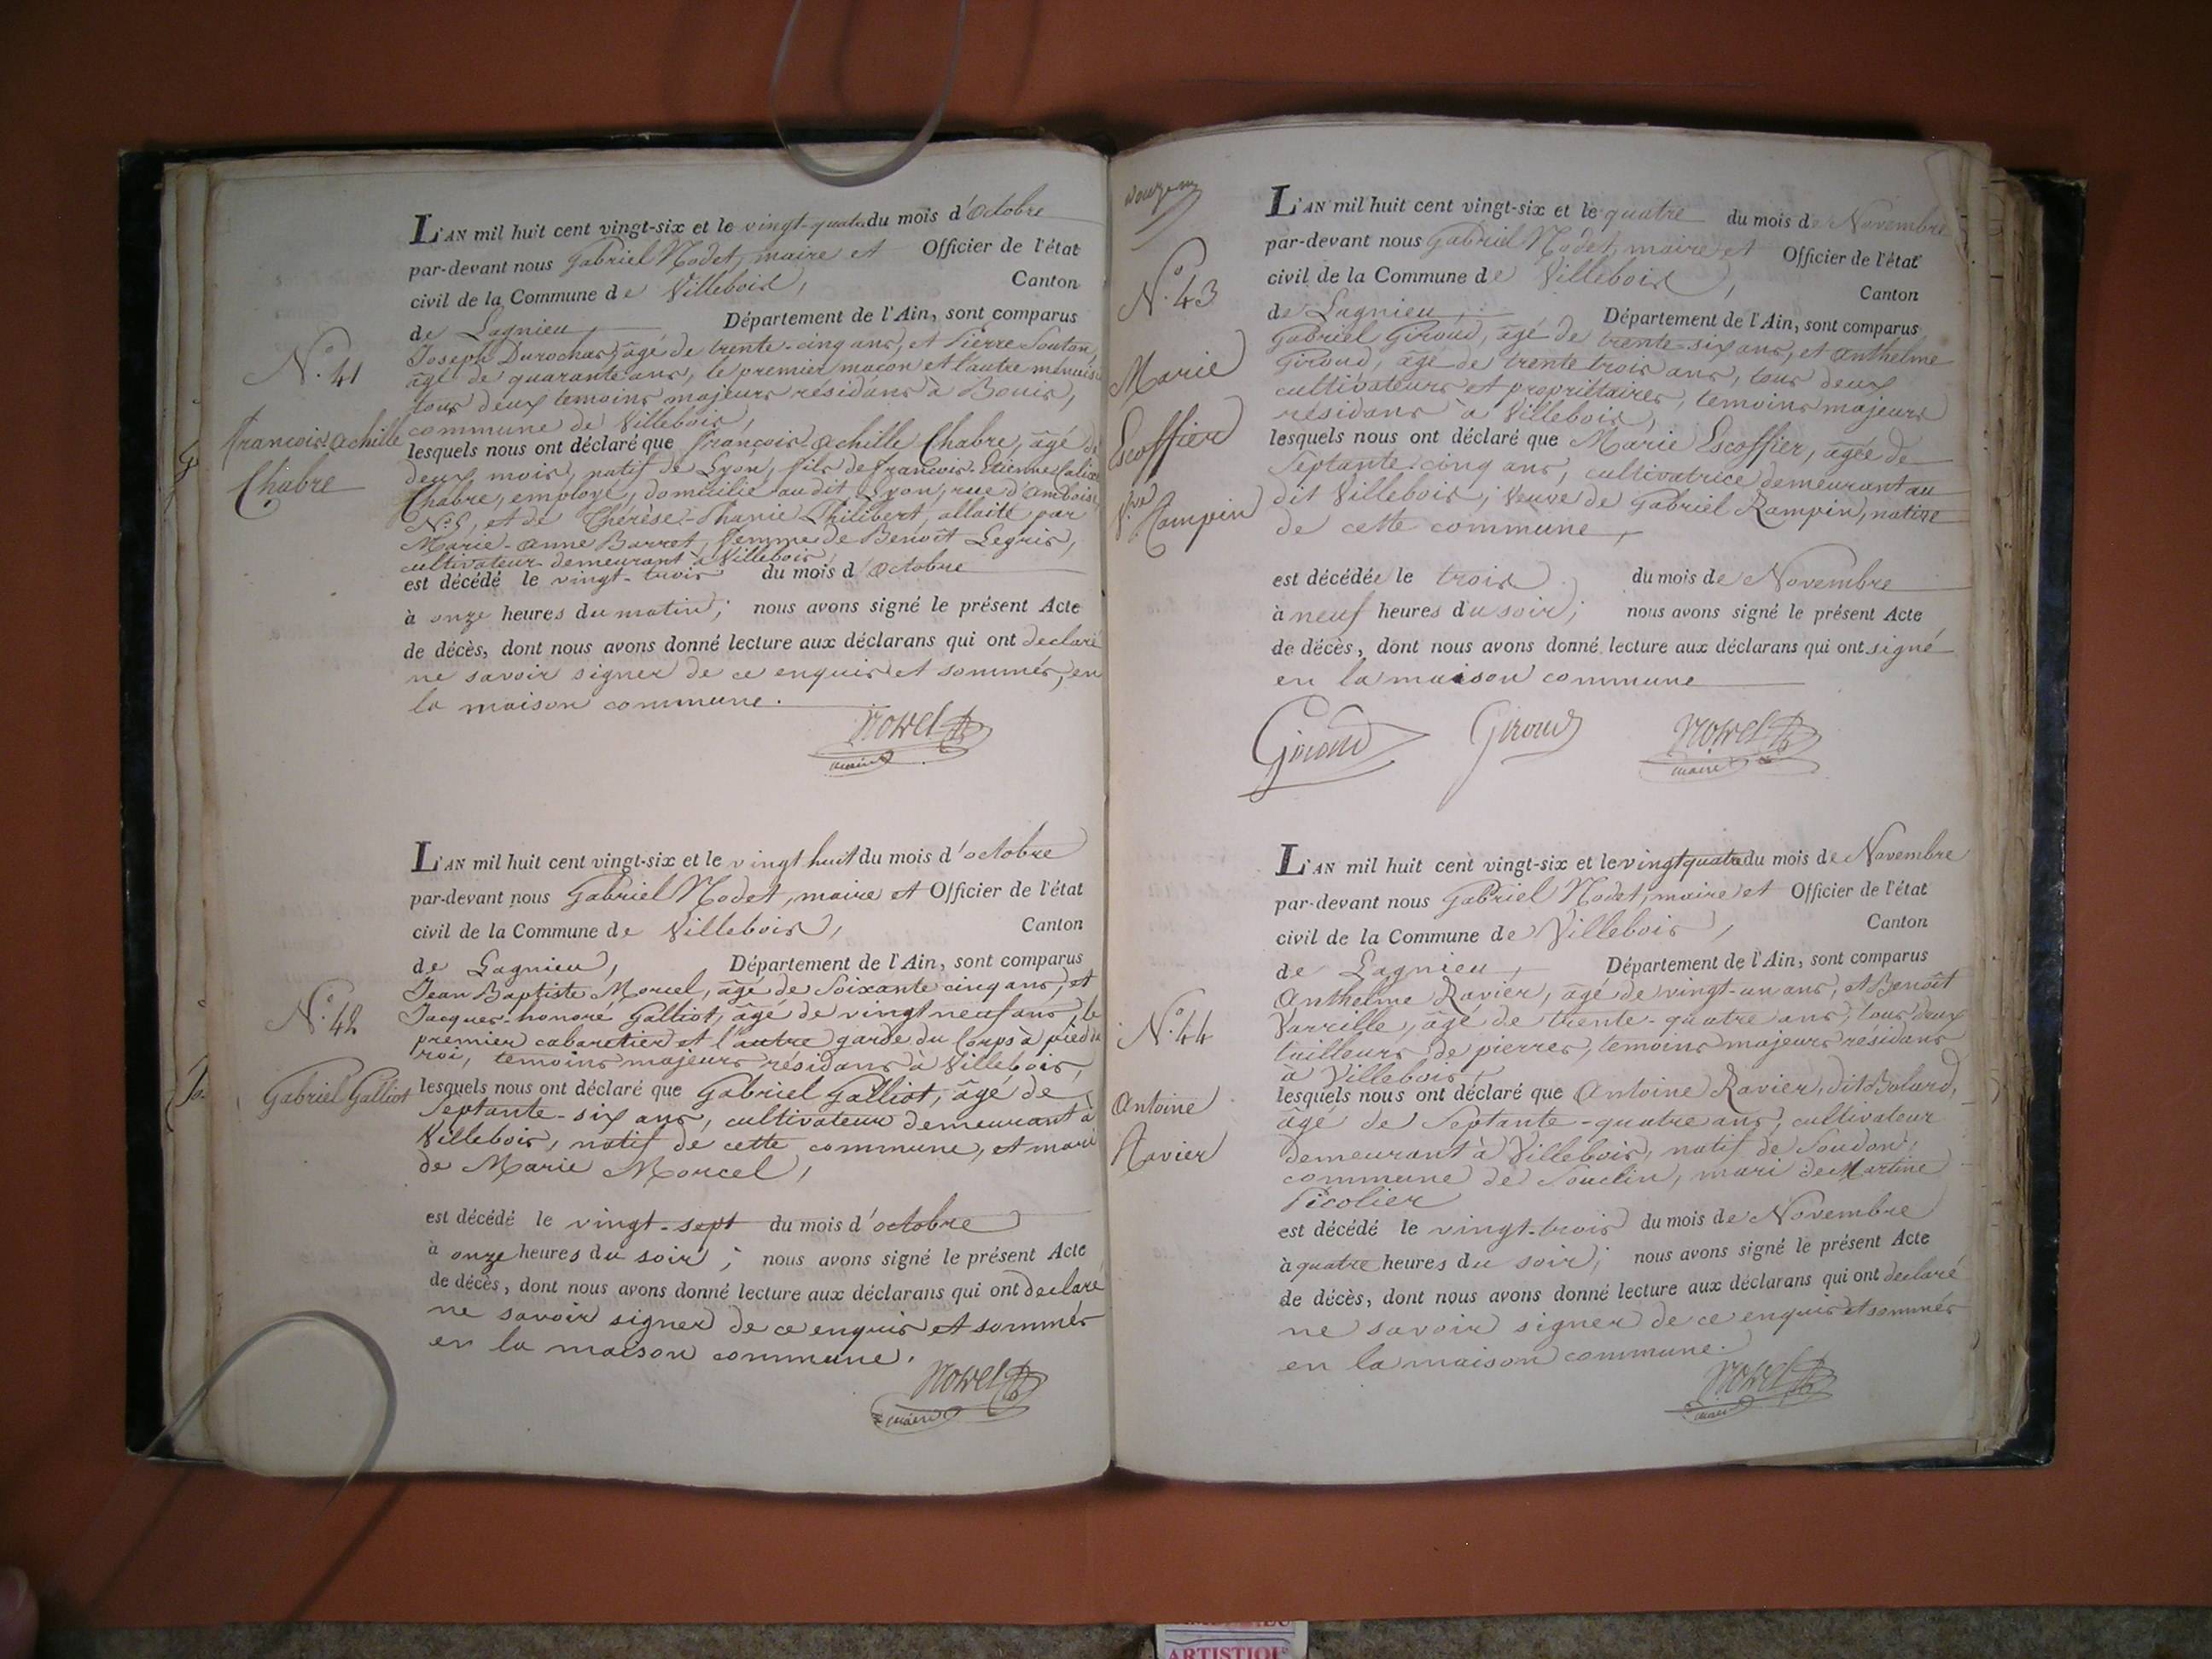 L'AN mil huit cent vingt-six et le vingt-quatre du mois d'Octobre
par-devant nous Gabriel Nodet, maire et Officier de l'état
civil de la Commune de Villebois, Canton
de Lagnieu, Département de l'Ain, sont comparus
Joseph Durochat, âgé de trente-cinq ans, et Pierre Souton,
âgé de quarante ans, le premier maçon et l'autre menuisier
tous deux temoins majeurs résidans à Bouis,
commune de Villebois,
N.o 41
François-Achille
Chabre
lesquels nous ont déclaré que François-Achille Chabre, âgé de
deux mois, natif de Lyon, fils de François-Etienne
Chabre, employé, domicilié audit Lyon, rue d'Amboise,
N.o 5, et de Thérèse-Phanie Philibert, allaité par
Marie-Anne Barret, femme de Benoît Legris,
cultivateur demeurant à Villebois,
est décédé le vingt-trois du mois d'Octobre
à onze heures du matin; nous avons signé le présent Acte
de décès, dont nous avons donné lecture aux déclarans qui ont declaré
ne savoir signer de ce enquis et sommés, en
la maison commune.
maire
L'AN mil huit cent vingt-six et le vingt huit du mois d'octobre
par-devant nous Gabriel Nodet, maire et Officier de l'état
civil de la Commune de Villebois, Canton
de Lagnieu, Département de l'Ain, sont comparus
Jean Baptiste Morcel, âgé de Soixante cinq ans, et
Jacques-honoré Galliot, âgé de vingt neuf ans, le
premier cabaretier et l'autre garde du Corps à pied du
roi, temoins majeurs résidans à Villebois,
N.o 42
Gabriel Galliot
lesquels nous ont déclaré que Gabriel Galliot, âgé de
Septante-six ans, cultivateur demeurant à
Villebois, natif de cette commune, et mari
de Marie Morcel,
est décédé le vingt-sept du mois d'octobre
à onze heures du soir; nous avons signé le présent Acte
de décès, dont nous avons donné lecture aux déclarans qui ont declaré
ne savoir signer de ce enquis et sommés
en la maison commune.
maire
L'AN mil huit cent vingt-six et le quatre du mois de Novembre
par-devant nous Gabriel Nodet, maire et Officier de l'état
civil de la Commune de Villebois, Canton
de Lagnieu, Département de l'Ain, sont comparus
Gabriel Giroud, âgé de trente-six ans, et Anthelme
Giroud, âgé de trente trois ans, tous deux
cultivateurs et propriétaires, temoins majeurs
résidans à Villebois,
N.o 43
Marie
Escoffier
v.ve
Rampin
lesquels nous ont déclaré que Marie Escoffier, agée de
Septante-cinq ans, cultivatrice demeurant au
dit Villebois, Veuve de Gabriel Rampin, native
de cette commune,
est décédée le trois du mois de Novembre
à neuf heures du soir; nous avons signé le présent Acte
de décès, dont nous avons donné lecture aux déclarans qui ont signé
en la maison commune
Giroud Giroud
maire
L'AN mil huit cent vingt-six et le vingt quatre du mois de Novembre
par-devant nous Gabriel Nodet, maire et Officier de l'état
civil de la Commune de Villebois, Canton
de Lagnieu, Département de l'Ain, sont comparus
Anthelme Ravier, âgé de vingt-un ans, et Benoît
Varville, âgé de trente-quatre ans, tous deux
tailleurs de pierres, temoins majeurs résidans
à Villebois,
N.o 44
Antoine
Ravier
lesquels nous ont déclaré que Antoine Ravier, dit Bolard,
âgé de Septante-quatre ans, cultivateur
demeurant à Villebois, natif de Soudon,
commune de Souclin, mari de Martine
Picolier
est décédé le vingt-trois du mois de Novembre
à quatre heures du soir; nous avons signé le présent Acte
de décès, dont nous avons donné lecture aux déclarans qui ont declaré
ne savoir signer de ce enquis et sommés
en la maison commune.
maire
ARTISTIQUE